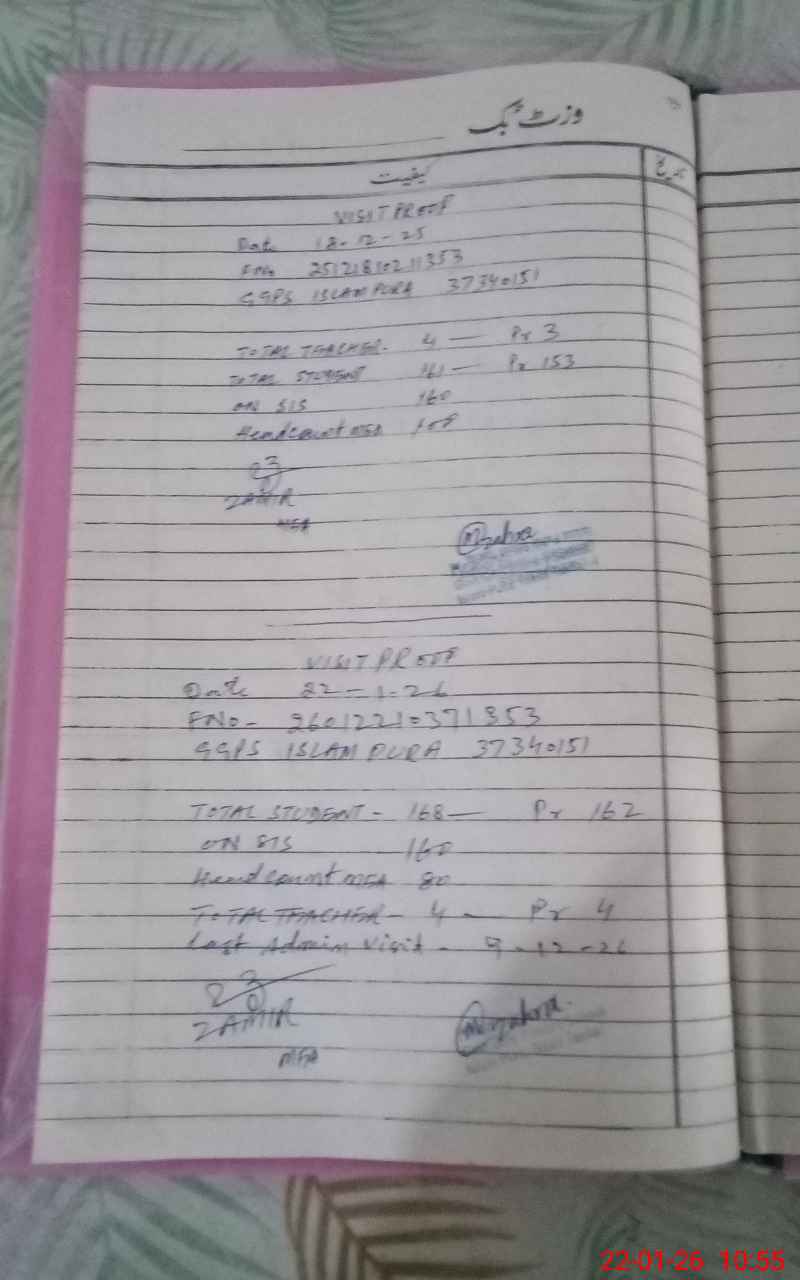 وزٹ بک
کیفیت
تاریخ
VISIT PROOF
Date 18-12-25
FNo 25121810211353
GGPS ISLAMPURA 37340151
TOTAL TEACHER- 4 — Pr 3
TOTAL STUDENT 161 — Pr 153
ON SIS 160
Headcount MEA 108
ZAMIR
MEA
VISIT PROOF
Date 22-1-26
FNo- 26012210371353
GGPS ISLAMPURA 37340151
TOTAL STUDENT - 168 — Pr 162
ON SIS 160
Headcount MEA 80
TOTAL TEACHER - 4 — Pr 4
Last Admin Visit - 9-12-26
ZAMIR
MEA
22-01-26 10:55